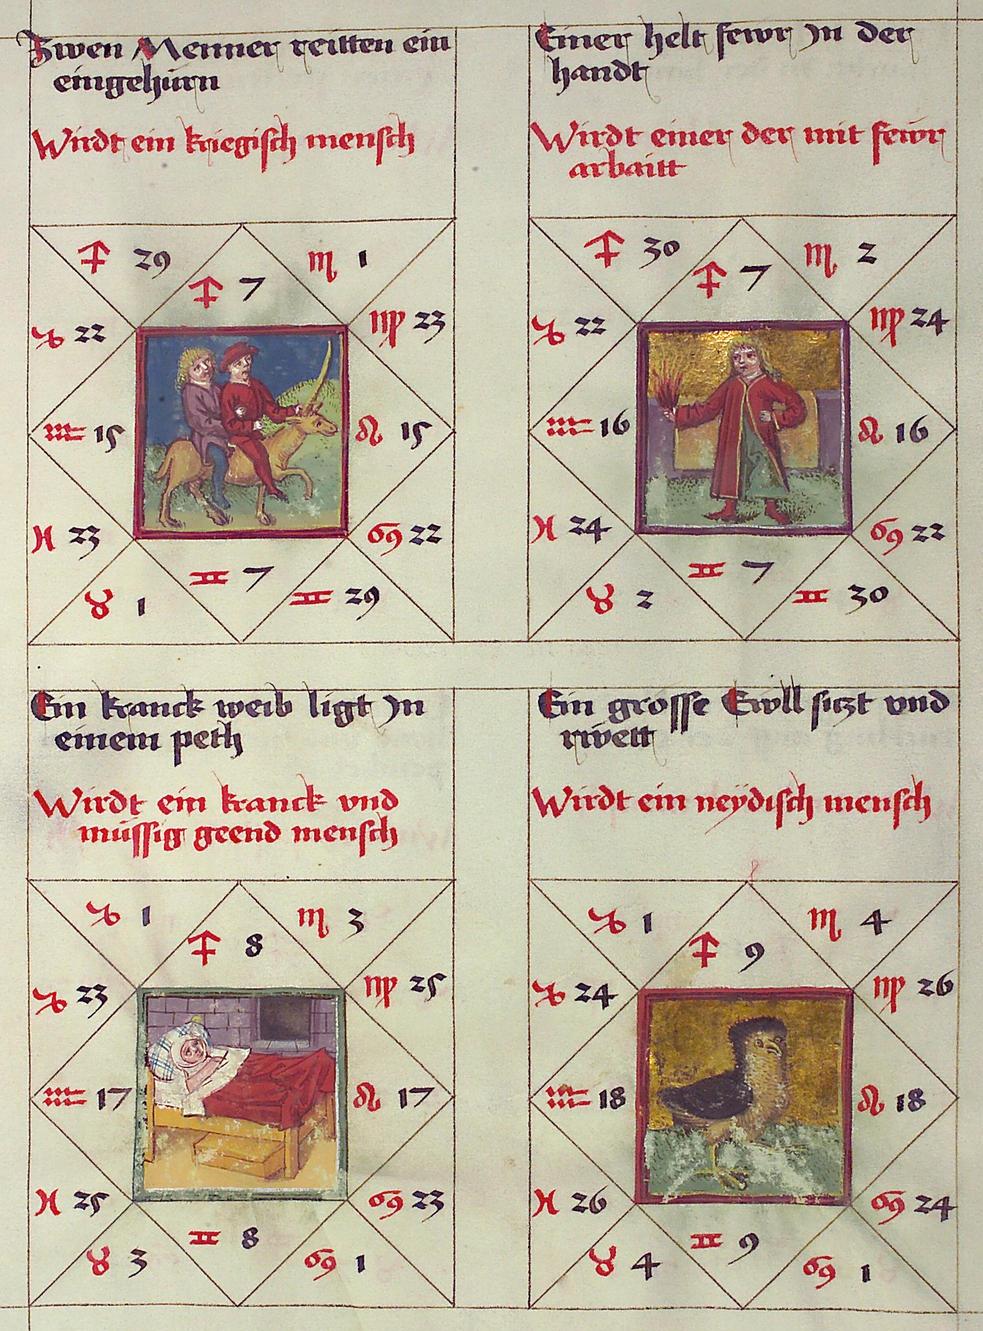 Zwen Menner reitten ein
eingehürn
Wirdt ein kriegisch mensch
♐ 29
♐ 7
♏ 1
♑ 22
♍ 23
♒ 15
♌ 15
♓ 23
♋ 22
♉ 1
♊ 7
♊ 29
Einer helt fewr jn der
handt
Wirdt einer der mit fewr
arbaitt
♐ 30
♐ 7
♏ 2
♑ 22
♍ 24
♒ 16
♌ 16
♓ 24
♋ 22
♉ 2
♊ 7
♊ 30
Ein kranck weib ligt jn
einem peth
Wirdt ein kranck vnd
müssig geend mensch
♑ 1
♐ 8
♏ 3
♑ 23
♍ 25
♒ 17
♌ 17
♓ 25
♋ 23
♉ 3
♊ 8
♋ 1
Ein grosse Ewll siczt vnd
Wirdt ein neÿdisch mensch
♑ 1
♐ 9
♏ 4
♑ 24
♍ 26
♒ 18
♌ 18
♓ 26
♋ 24
♉ 4
♊ 9
♋ 1